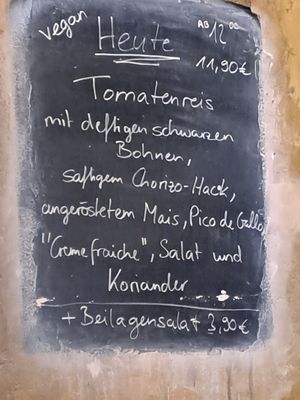 vegan
Heute
AB 12 00
11,90€
Tomatenreis
mit deftigen schwarzen
Bohnen,
saftigem Chorizo-Hack,
angeröstetem Mais, Pico de Gallo,
"Creme fraiche", Salat und
Koriander
+ Beilagensalat 3,90€